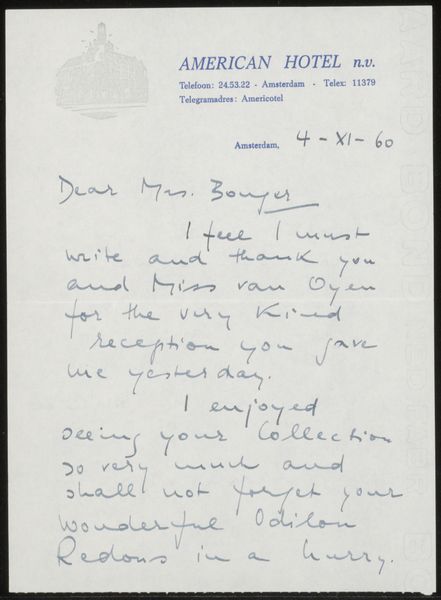 AMERICAN HOTEL n.v.
Telefoon: 24.53.22 - Amsterdam - Telex: 11379
Telegramadres: Americotel
Amsterdam, 4-XI-60
Dear Mrs. Bonger
I feel I must
write and thank you
and Miss van Oyen
for the very kind
reception you gave
me yesterday.
I enjoyed
seeing your Collection
so very much and
shall not forget your
wonderful Odilon
Redons in a hurry.